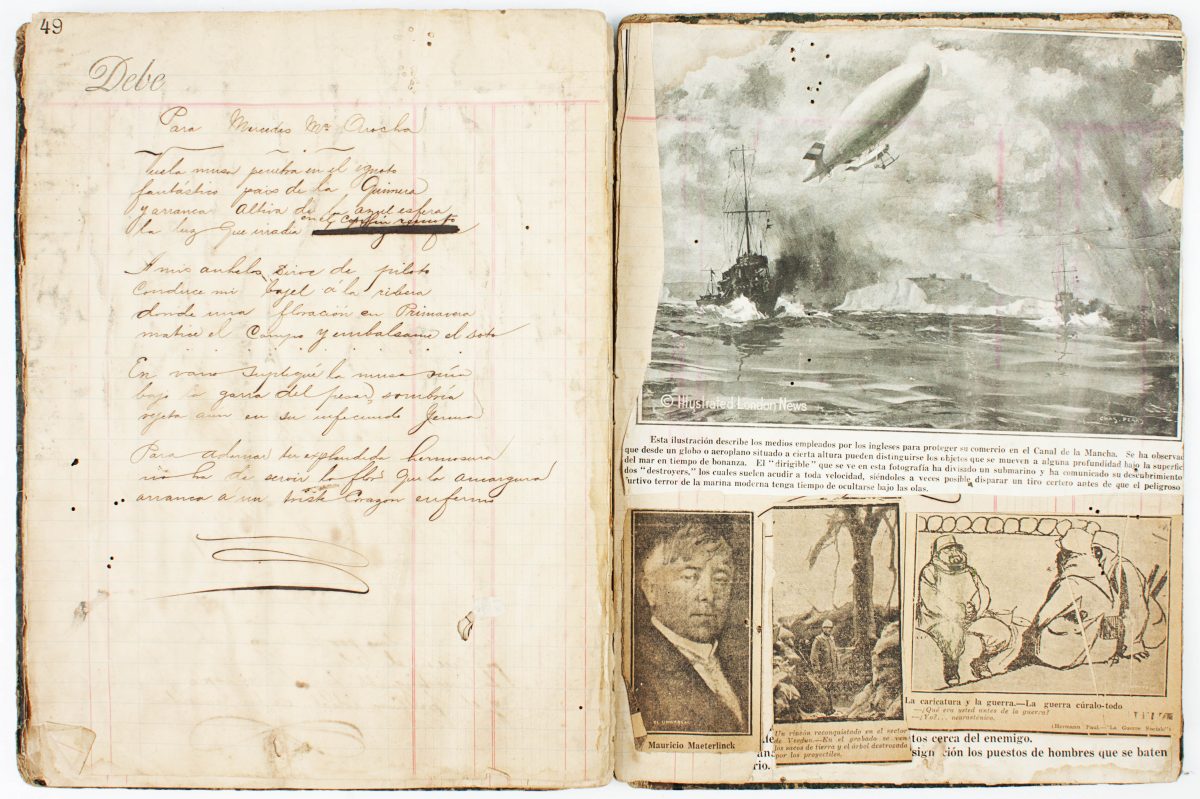 49
Debe
Para Mercedes Ma. Arocha
Vuela musa penetra en el ignoto
fantástico pais de la Quimera
y arranca altiva de la azul esfera
la luz que irradia en el
A mis anhelos sirve de piloto
Conduce mi bajel á la ribera
donde una floración en Primavera
matice el Campo y embalsame el Soto
En vano supliqué la musa mía
bajo la garra del pesar sombría
vejeta aun en su infecundo
Para adornar tu esplendida hermosura
no ha de servir la flor que la amargura
arranca a un triste Corazón enfermo
© Illustrated London News
Esta ilustración describe los medios empleados por los ingleses para proteger su comercio en el Canal de la Mancha. Se ha observad
que desde un globo o aeroplano situado a cierta altura pueden distinguirse los objetos que se mueven a alguna profundidad bajo la superfic
del mar en tiempo de bonanza. El "dirigible" que se ve en esta fotografía ha divisado un submarino y ha comunicado su descubrimiento
dos "destroyers," los cuales suelen acudir a toda velocidad, siéndoles a veces posible disparar un tiro certero antes de que el peligroso
urtivo terror de la marina moderna tenga tiempo de ocultarse bajo las olas.
EL UNIVERSAL
Mauricio Maeterlinck
Un rincón reconquistado en el sector
de Verdun.—En el grabado se ven
los sacos de tierra y el árbol destrozado
por los proyectiles.
La caricatura y la guerra.—La guerra cúralo-todo
—¿Qué era usted antes de la guerra?
—¿Yo?... neurasténico.
(Hermann Paul.—"La Guerre Sociale")
tos cerca del enemigo.
ción los puestos de hombres que se baten
rio.